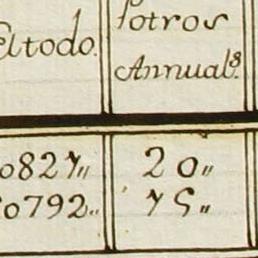 el todo. Potros
Annual.s
0827,, 20,,
0792,, 75,,